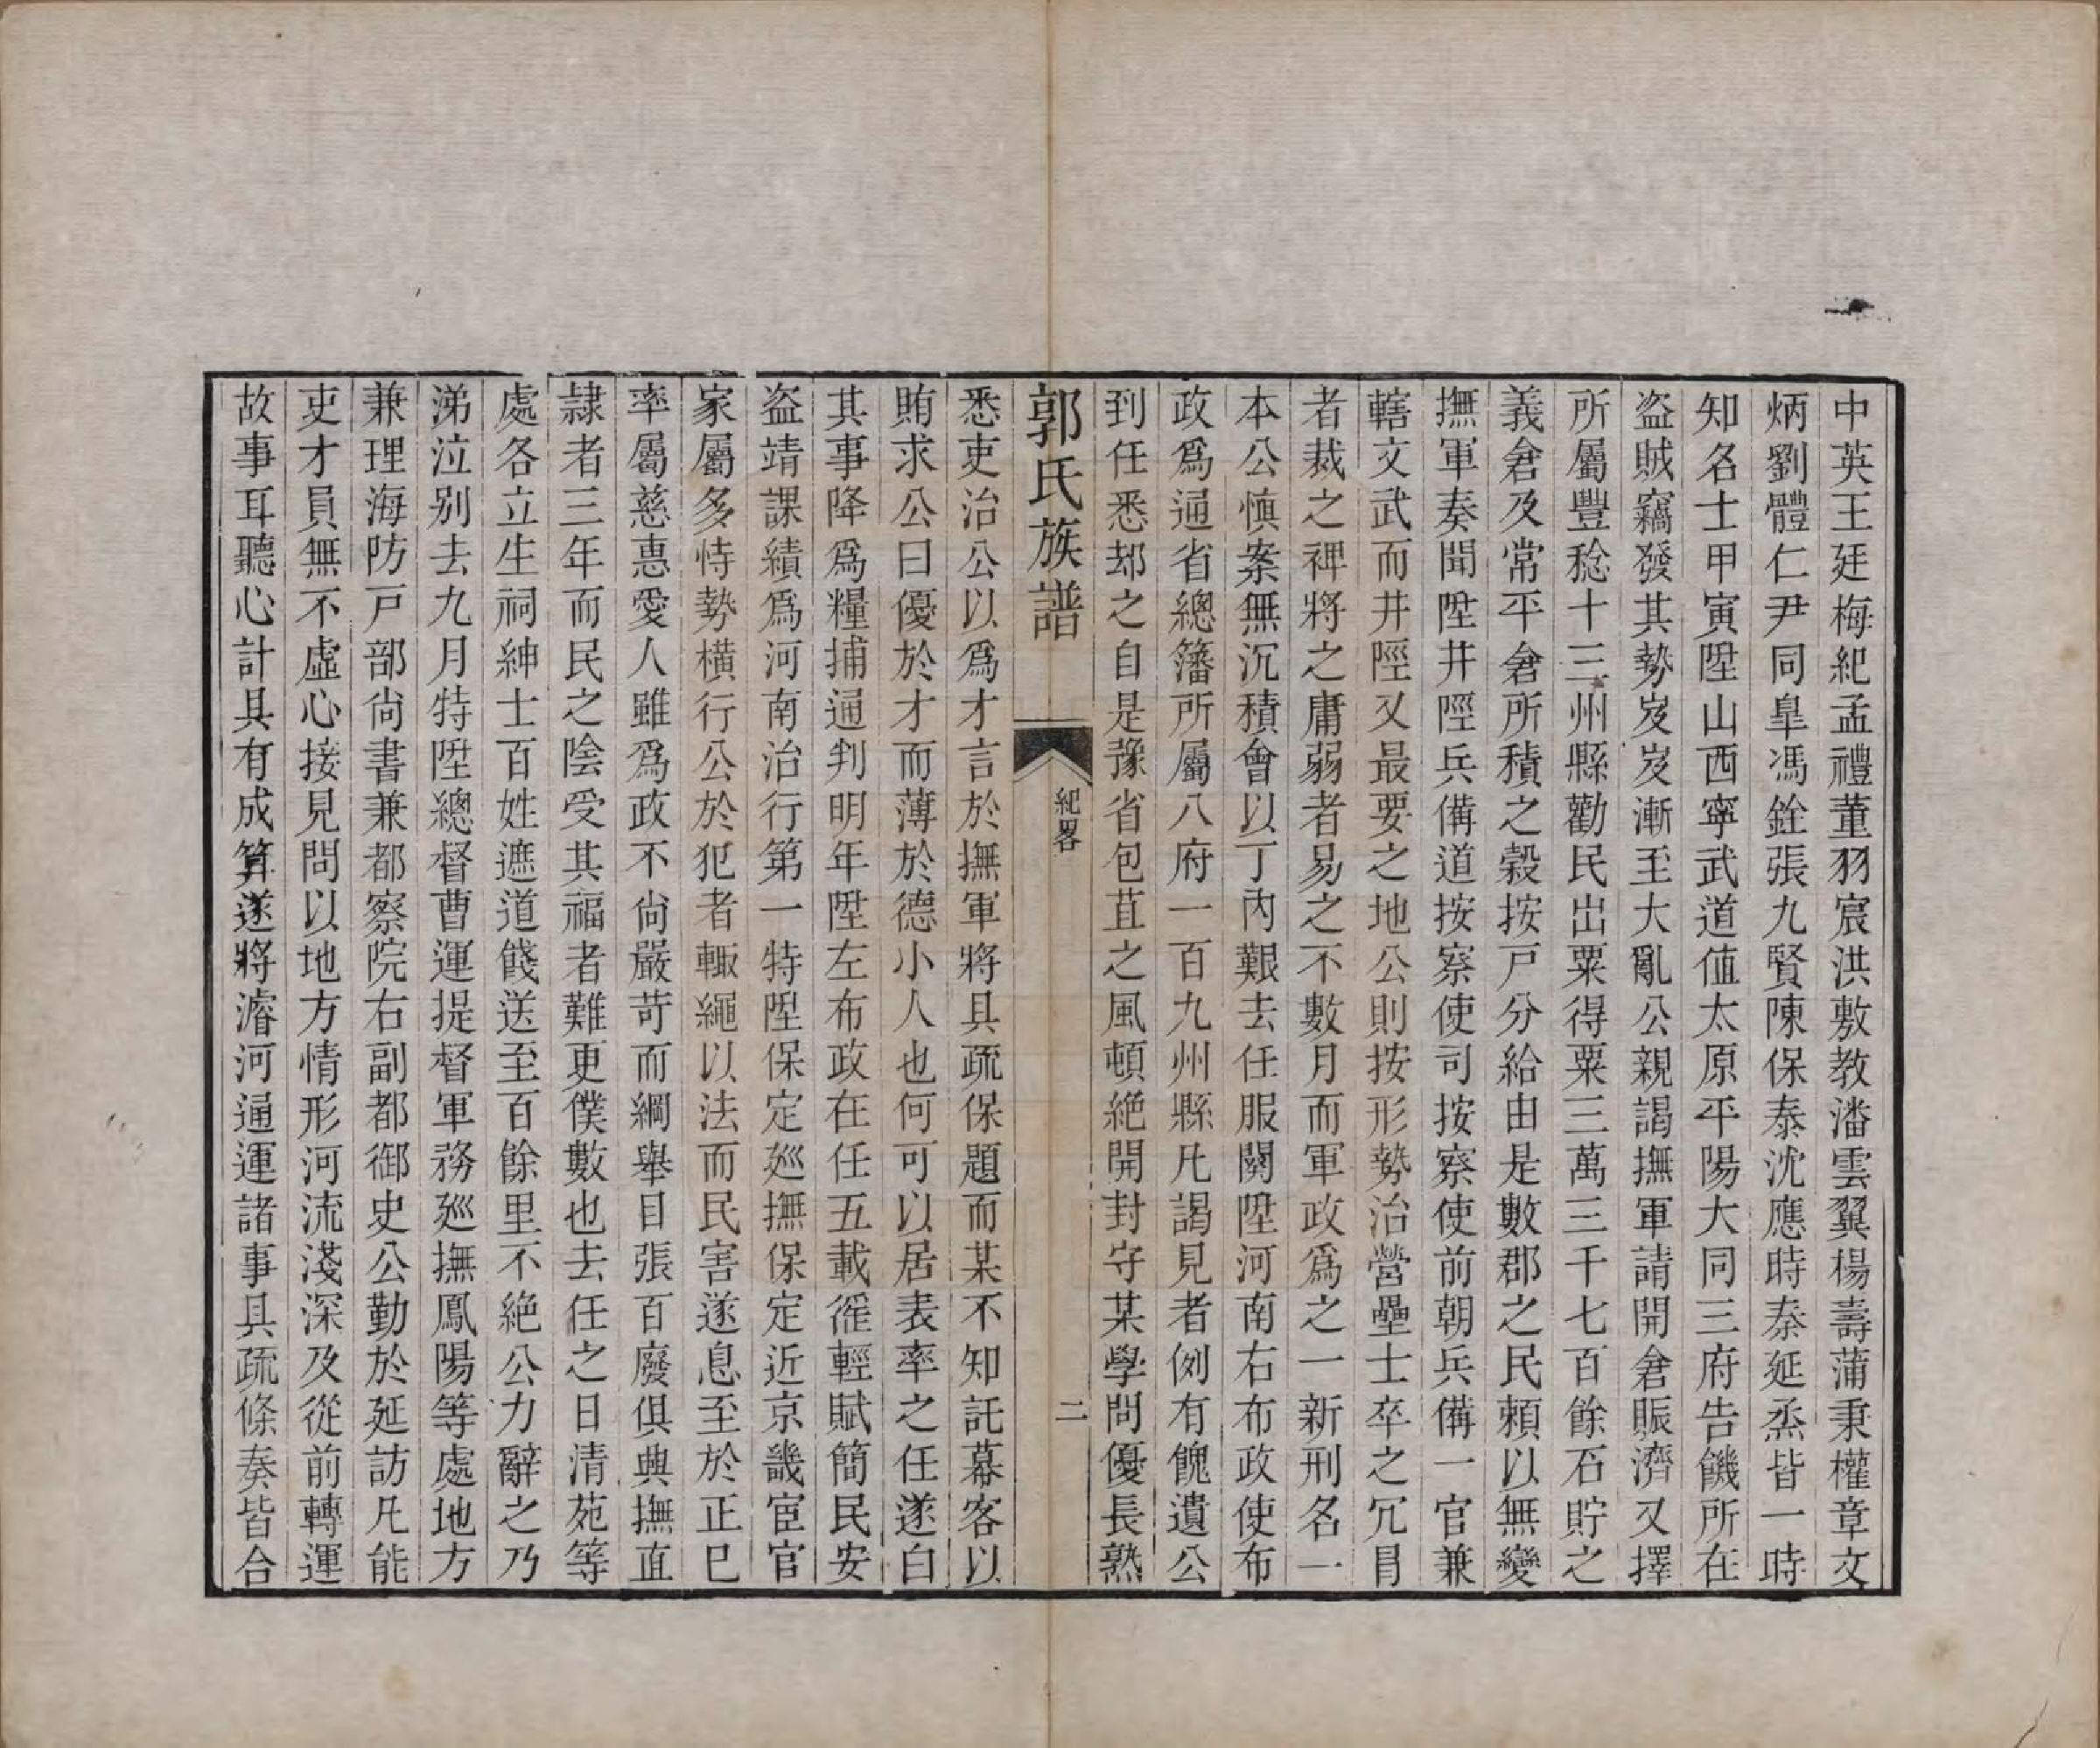 中英王廷梅紀孟禮董羽宸洪敷教潘雲翼楊壽蒲秉權章文
炳劉體仁尹同臯馮銓張九賢陳保泰沈應時泰延烝皆一時
知名士甲寅陞山西寧武道值太原平陽大同三府告饑所在
盗賊竊發其勢岌岌漸至大亂公親謁撫軍請開倉賑濟又擇
所屬豐稔十三州縣勸民出粟得粟三萬三千七百餘石貯之
義倉及常平倉所積之穀按戸分給由是數郡之民頼以無變
撫軍奏聞陞井陘兵備道按察使司按察使前朝兵備一官兼
轄文武而井陘又最要之地公則按形勢治營壘士卒之冗冒
者裁之裨將之庸弱者易之不數月而軍政爲之一新刑名一
本公慎案無沉積會以丁內艱去任服闋陞河南右布政使布
政爲通省總籓所屬八府一百九州縣凡謁見者例有餽遺公
到任悉却之自是豫省包苴之風頓絶開封守某學問優長熟
郭氏族譜 紀畧 二
悉吏治公以爲才言於撫軍將具疏保題而某不知託幕客以
賄求公曰優於才而薄於德小人也何可以居表率之任遂白
其事降爲糧捕通判明年陞左布政在任五載徭輕賦簡民安
盗靖課績爲河南治行第一特陞保定廵撫保定近京畿宦官
家屬多恃勢橫行公於犯者輙繩以法而民害遂息至於正已
率屬慈惠愛人雖爲政不尙嚴苛而綱舉目張百廢俱典撫直
隷者三年而民之陰受其福者難更僕數也去任之日清苑等
處各立生祠紳士百姓遮道餞送至百餘里不絶公力辭之乃
涕泣别去九月特陞總督曹運提督軍務廵撫鳳陽等處地方
兼理海防戸部尙書兼都察院右副都御史公勤於延訪凡能
吏才員無不虛心接見問以地方情形河流淺深及從前轉運
故事耳聽心計具有成算遂將濬河通運諸事具疏條奏皆合